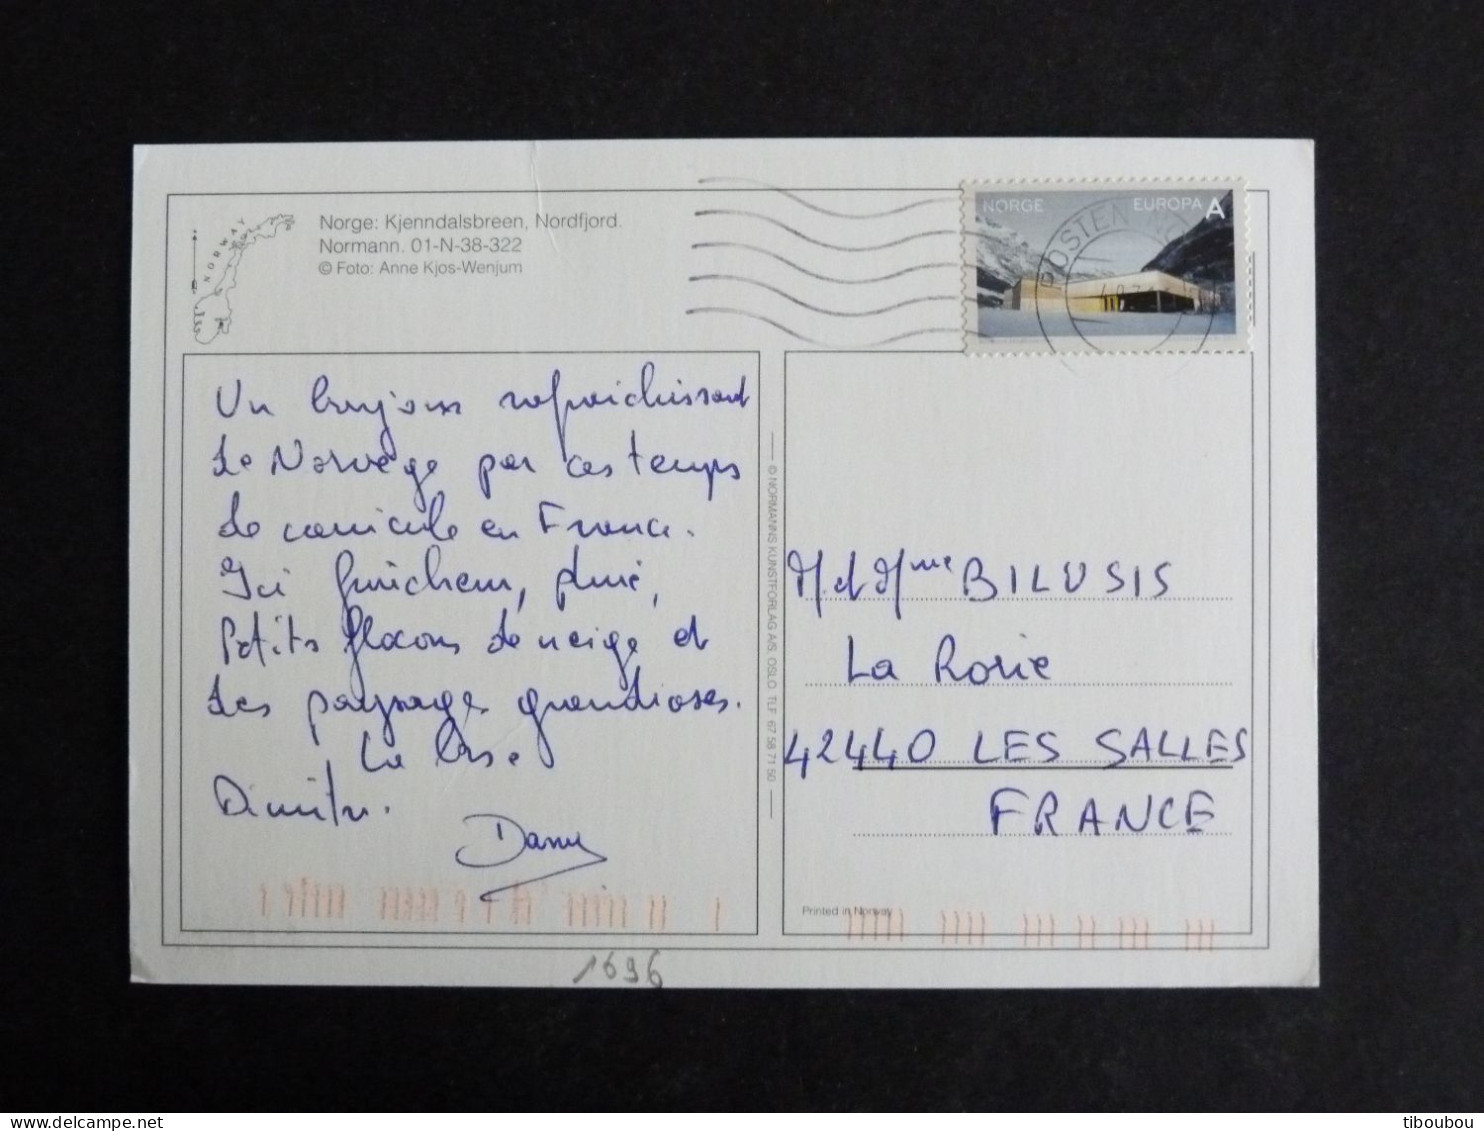 NORWAY
Norge: Kjenndalsbreen, Nordfjord.
Normann. 01-N-38-322
© Foto: Anne Kjos-Wenjum
NORGE EUROPA A
POSTEN NO
Un bonjour rafraichissant
de Norvège par ces temps
de canicule en France.
Ici fraicheur, pluie,
Petits flocons de neige et
des paysages grandioses.
La bise
Dimitri. Dany
© NORMANNS KUNSTFORLAG A/S, OSLO. TLF. 67 58 71 50
M. et Mme BILUSIS
La Rorie
42440 LES SALLES
FRANCE
Printed in Norway
1696
tiboubou